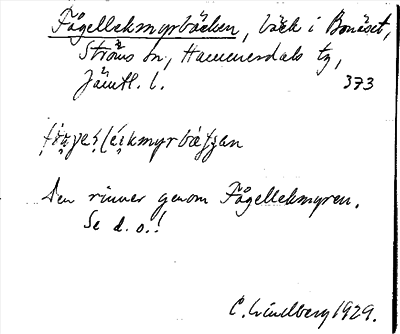 Fågellekmyrbäcken, bäck i Bonäset,
Ströms sn, Hammerdals tg,
Jämtl. l. 373
Den rinner genom Fågellekmyren.
Se d. o.!
C. Lindberg 1929.